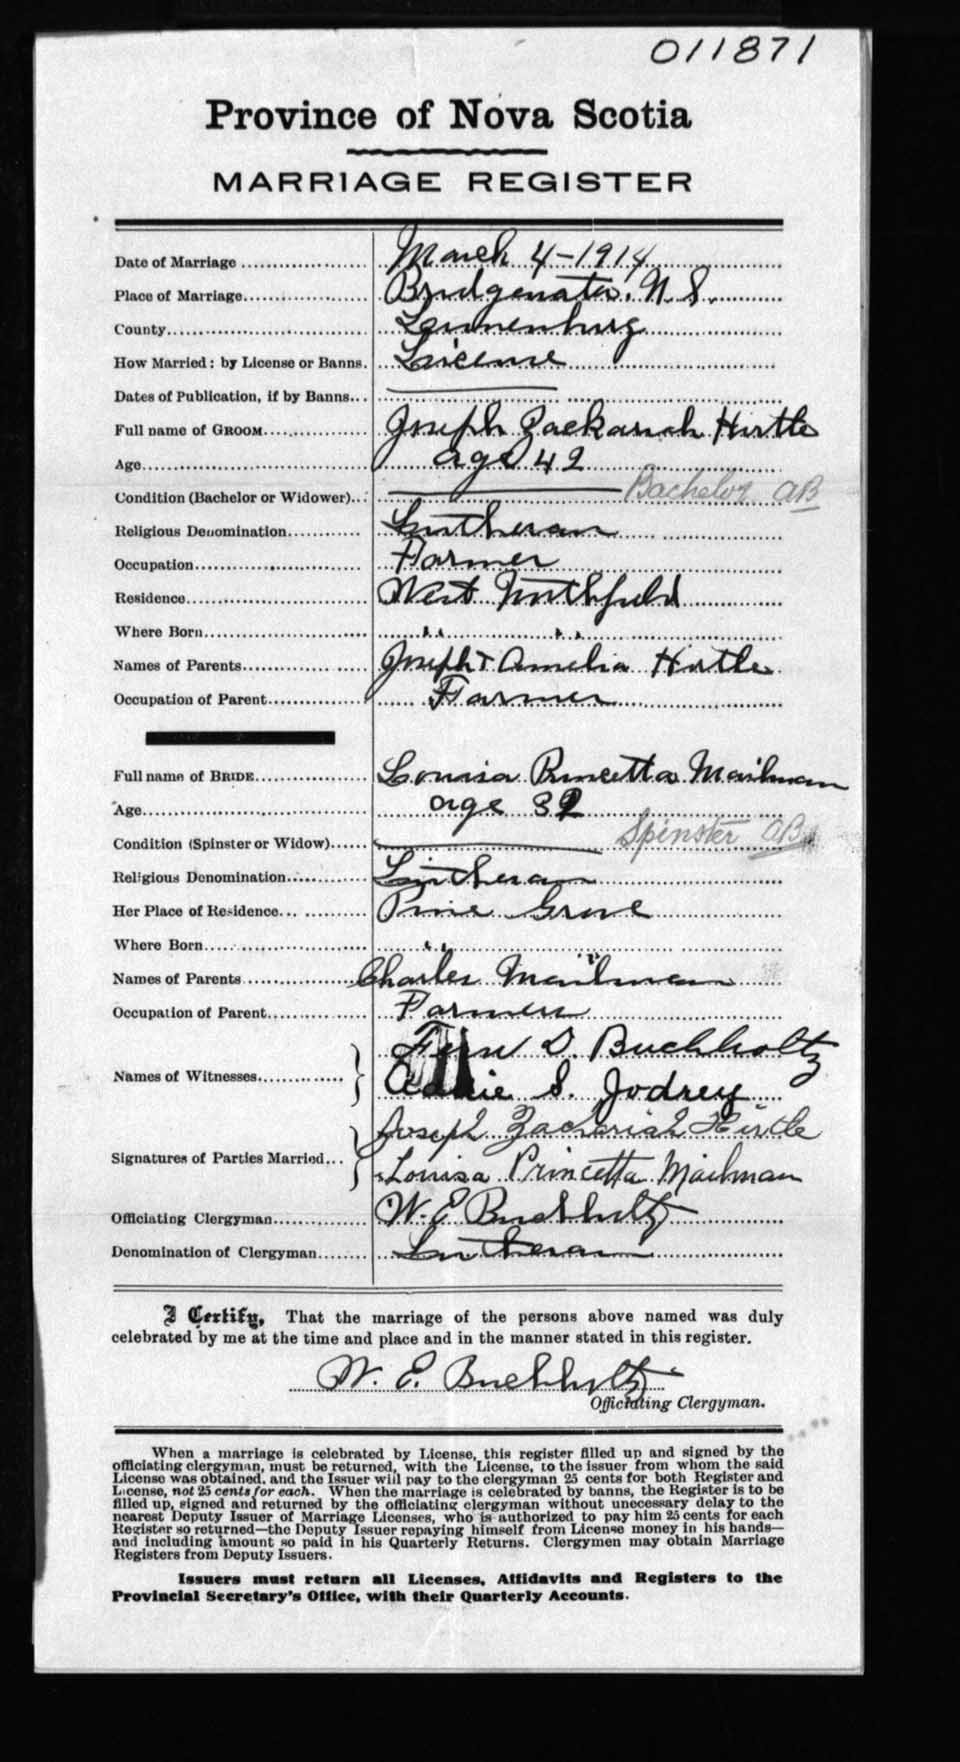 011871
Province of Nova Scotia
MARRIAGE REGISTER
Date of Marriage March 4-1914
Place of Marriage Bridgewater, N.S.
County Lunenburg
How Married: by License or Banns. License
Dates of Publication, if by Banns
Full name of GROOM Joseph Zackariah Hirtle
Age age 42
Condition (Bachelor or Widower) Bachelor AB
Religious Denomination Lutheran
Occupation Farmer
Residence West Northfield
Where Born " "
Names of Parents Joseph + Amelia Hirtle
Occupation of Parent Farmer
Full name of BRIDE Louisa Princetta Mailman
Age age 32
Condition (Spinster or Widow) Spinster AB
Religious Denomination Lutheran
Her Place of Residence Pine Grove
Where Born " "
Names of Parents Charles Mailman
Occupation of Parent Farmer
Fern D. Buchholtz
Names of Witnesses S. Jodrey
Joseph Zacheriah Hirtle
Signatures of Parties Married
Louisa Princetta Mailman
Officiating Clergyman W. E. Buchholtz
Denomination of Clergyman Lutheran
I Certify, That the marriage of the persons above named was duly
celebrated by me at the time and place and in the manner stated in this register.
W. E. Buchholtz
Officiating Clergyman.
When a marriage is celebrated by License, this register filled up and signed by the
officiating clergyman, must be returned, with the License, to the issuer from whom the said
License was obtained, and the Issuer will pay to the clergyman 25 cents for both Register and
License, not 25 cents for each. When the marriage is celebrated by banns, the Register is to be
filled up, signed and returned by the officiating clergyman without unecessary delay to the
nearest Deputy Issuer of Marriage Licenses, who is authorized to pay him 25 cents for each
Register so returned—the Deputy Issuer repaying himself from License money in his hands—
and including amount so paid in his Quarterly Returns. Clergymen may obtain Marriage
Registers from Deputy Issuers.
Issuers must return all Licenses, Affidavits and Registers to the
Provincial Secretary's Office, with their Quarterly Accounts.